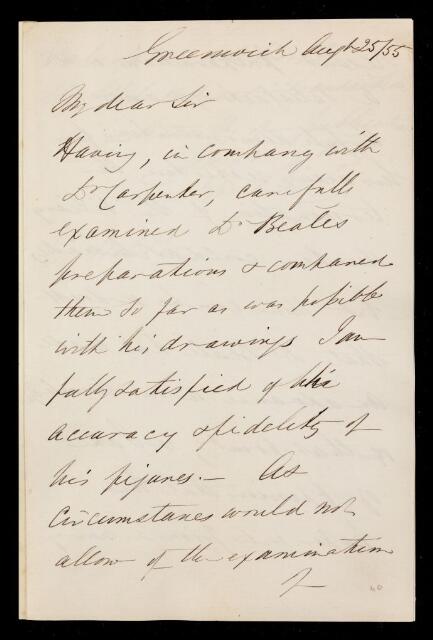 Greenwich Augt 25/55
My dear Sir
Having, in company with
Dr Carpenter, carefully
examined Dr Beale's
preparations & compared
them so far as was possible
with his drawings I am
fully satisfied of the
accuracy & fidelity of
his figures.— As
circumstances would not
allow of the examination